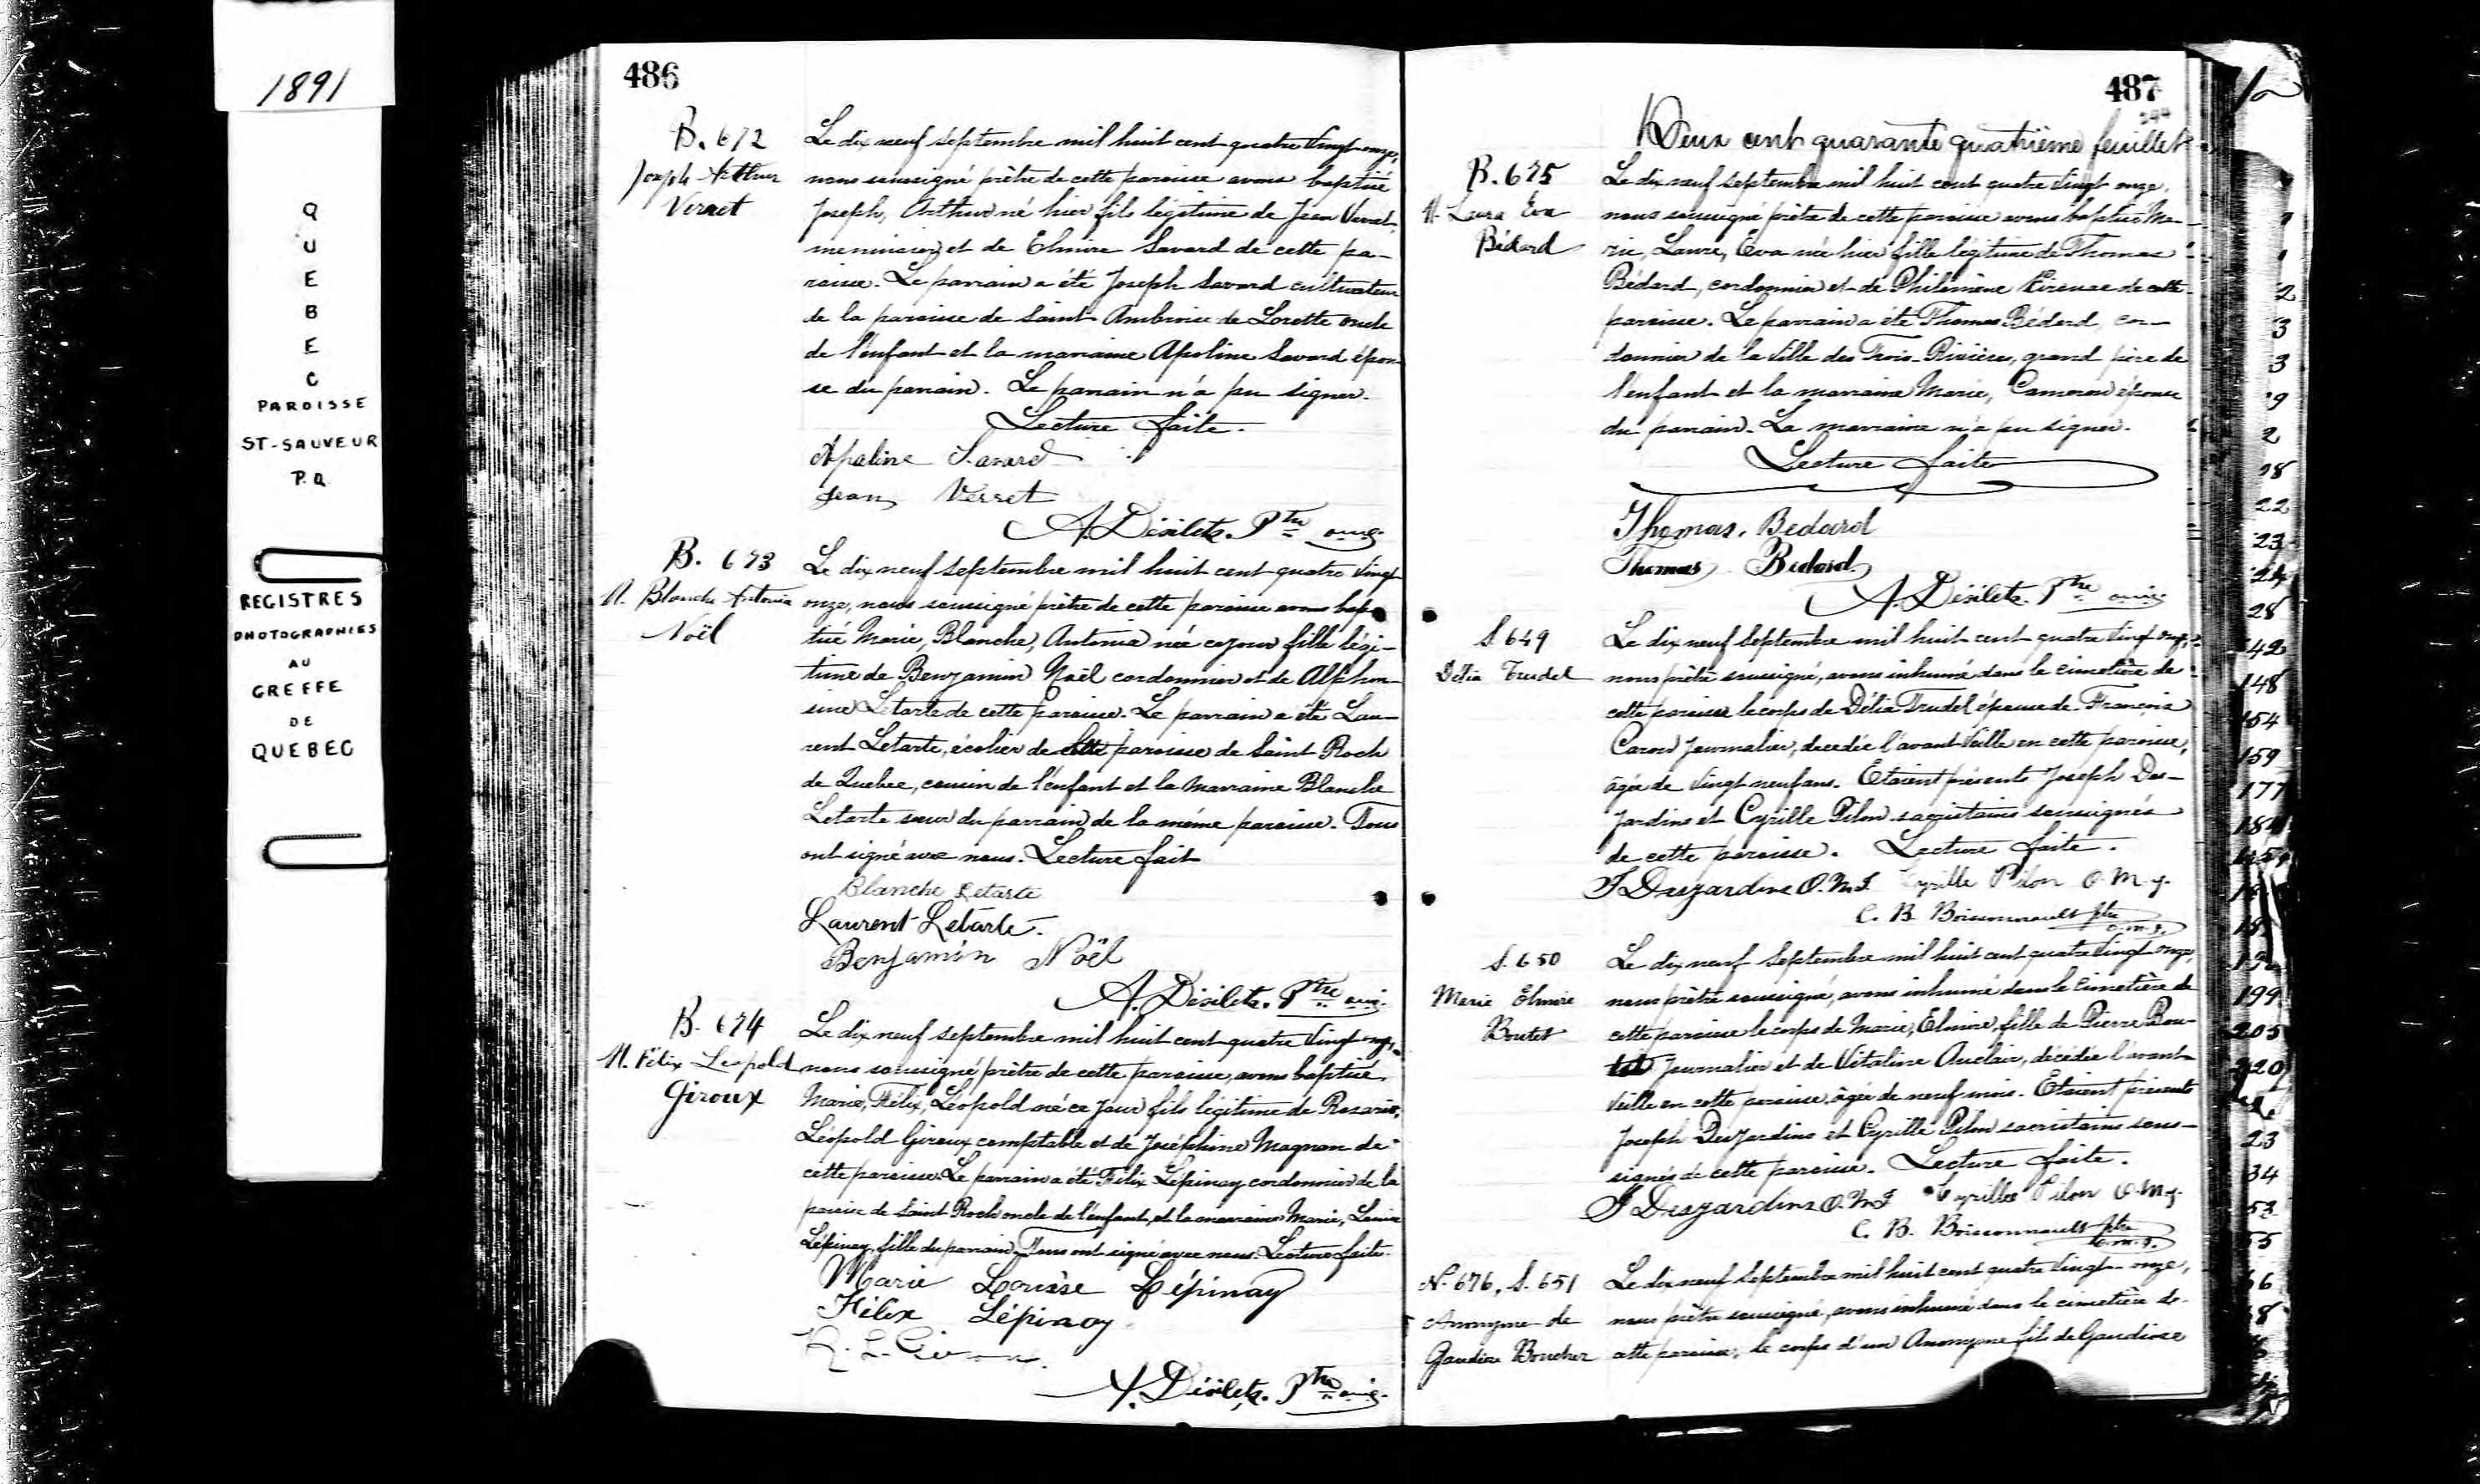 1891
QUEBEC
PAROISSE
ST-SAUVEUR
P.Q.
REGISTRES
PHOTOGRAPHIES
AU
GREFFE
DE
QUEBEC
486
B. 672
Joseph Arthur
Verret
Le dix neuf septembre mil huit cent quatre vingt onze,
nous soussigné prêtre de cette paroisse avons baptisé
Joseph, Arthur né hier fils légitime de Jean Verret,
menuisier et de Elmire Savard de cette pa-
roisse. Le parrain a été Joseph Savard cultivateur
de la paroisse de Saint Ambroise de Lorette oncle
de l'enfant et la marraine Apoline Savard épou-
se du parrain. Le parrain n'a pu signer.
Lecture faite.
Apaline Savard
Jean Verret
A. Désilets. Ptre o.m.i.
B. 673
M. Blanche Antonia
Noël
Le dix neuf septembre mil huit cent quatre vingt
onze, nous soussigné prêtre de cette paroisse avons bap-
tisé Marie, Blanche, Antonia née ce jour fille légi-
time de Benjamin Noël cordonnier et de Alphon-
sine Letarte de cette paroisse. Le parrain a été Lau-
rent Letarte, écolier de cette paroisse de Saint Roch
de Quebec, cousin de l'enfant et la marraine Blanche
Letarte sœur du parrain de la même paroisse. Tous
ont signé avec nous. Lecture fait
Blanche Letarte
Laurent Letarte.
Benjamin Noël
A. Désilets. Ptre o.m.i.
B. 674
M. Félix Leopold
Giroux
Le dix neuf septembre mil huit cent quatre vingt onze,
nous soussigné prêtre de cette paroisse, avons baptisé
Marie, Félix, Léopold né ce jour fils légitime de Rosario,
Léopold Giroux comptable et de Joséphine Magnan de
cette paroisse. Le parrain a été Félix Lépinay cordonnier de la
paroisse de Saint Roch oncle de l'enfant et la marraine Marie, Louise
Lépinay, fille du parrain. Tous ont signé avec nous. Lecture faite.
Marie Louise Lépinay
Félix Lépinay
R. L. Giroux.
A. Désilets. Ptre o.m.i.
487
244
Deux cent quarante quatrième feuillet
B. 675
M. Laura Eva
Bédard
Le dix neuf septembre mil huit cent quatre vingt onze,
nous soussigné prêtre de cette paroisse avons baptisé Ma-
rie, Laura, Eva née hier fille légitime de Thomas
Bédard, cordonnier et de Philomène de cette
paroisse. Le parrain a été Thomas Bédard, cor-
donnier de la ville des Trois-Rivières, grand père de
l'enfant et la marraine Marie, Cameron épouse
du parrain. La marraine n'a pu signer.
Lecture faite
Thomas. Bedard
Thomas Bedard
A. Désilets. Ptre o.m.i.
S. 649
Délia Trudel
Le dix neuf Septembre mil huit cent quatre vingt onze,
nous prêtre soussigné, avons inhumé dans le cimetière de
cette paroisse le corps de Délia Trudel épouse de François
Caron journalier, decedée l'avant veille en cette paroisse,
âgée de vingt neuf ans. Etaient présents Joseph Des-
jardins et Cyrille Pilon sacristains soussignés
de cette paroisse. Lecture faite.
J Desjardins O.M.I. Cyrille Pilon O.M.J.
C. B. Boissonnault ptre o.m.i.
S. 650
Marie Elmire
Boutet
Le dix neuf Septembre mil huit cent quatre vingt onze,
nous prêtre soussigné, avons inhumé dans le cimetière de
cette paroisse le corps de Marie, Elmire, fille de Pierre Bou-
tet journalier et de Vitaline Auclair, décédée l'avant
veille en cette paroisse, âgée de neuf mois. Etaient présents
Joseph Desjardins et Cyrille Pilon sacristains sous-
signés de cette paroisse. Lecture faite.
J Desjardins O.M.I Cyrille Pilon O.M.J.
C. B. Boissonnault ptre o.m.i.
N. 676, S. 651
Anonyme de
Gaudiose Boucher
Le dix neuf Septembre mil huit cent quatre vingt onze,
nous prêtre soussigné, avons inhumé dans le cimetière de
cette paroisse, le corps d'un Anonyme fils de Gaudiose
2
3
3
9
2
18
22
23
24
28
42
148
154
159
177
199
205
220
23
34
53
55